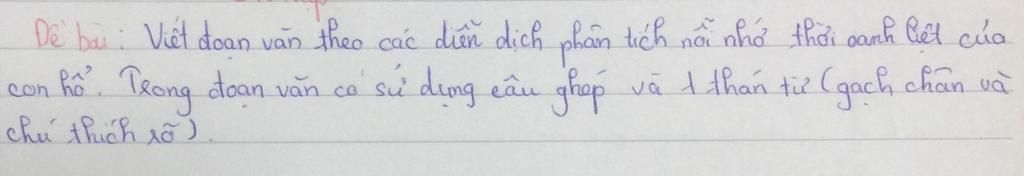 Đề bài: Viết đoạn văn theo các diễn dịch phân tích nỗi nhớ thời oanh liệt của
con hổ. Trong đoạn văn có sử dụng câu ghép và 1 thán từ (gạch chân và
chú thích rõ).